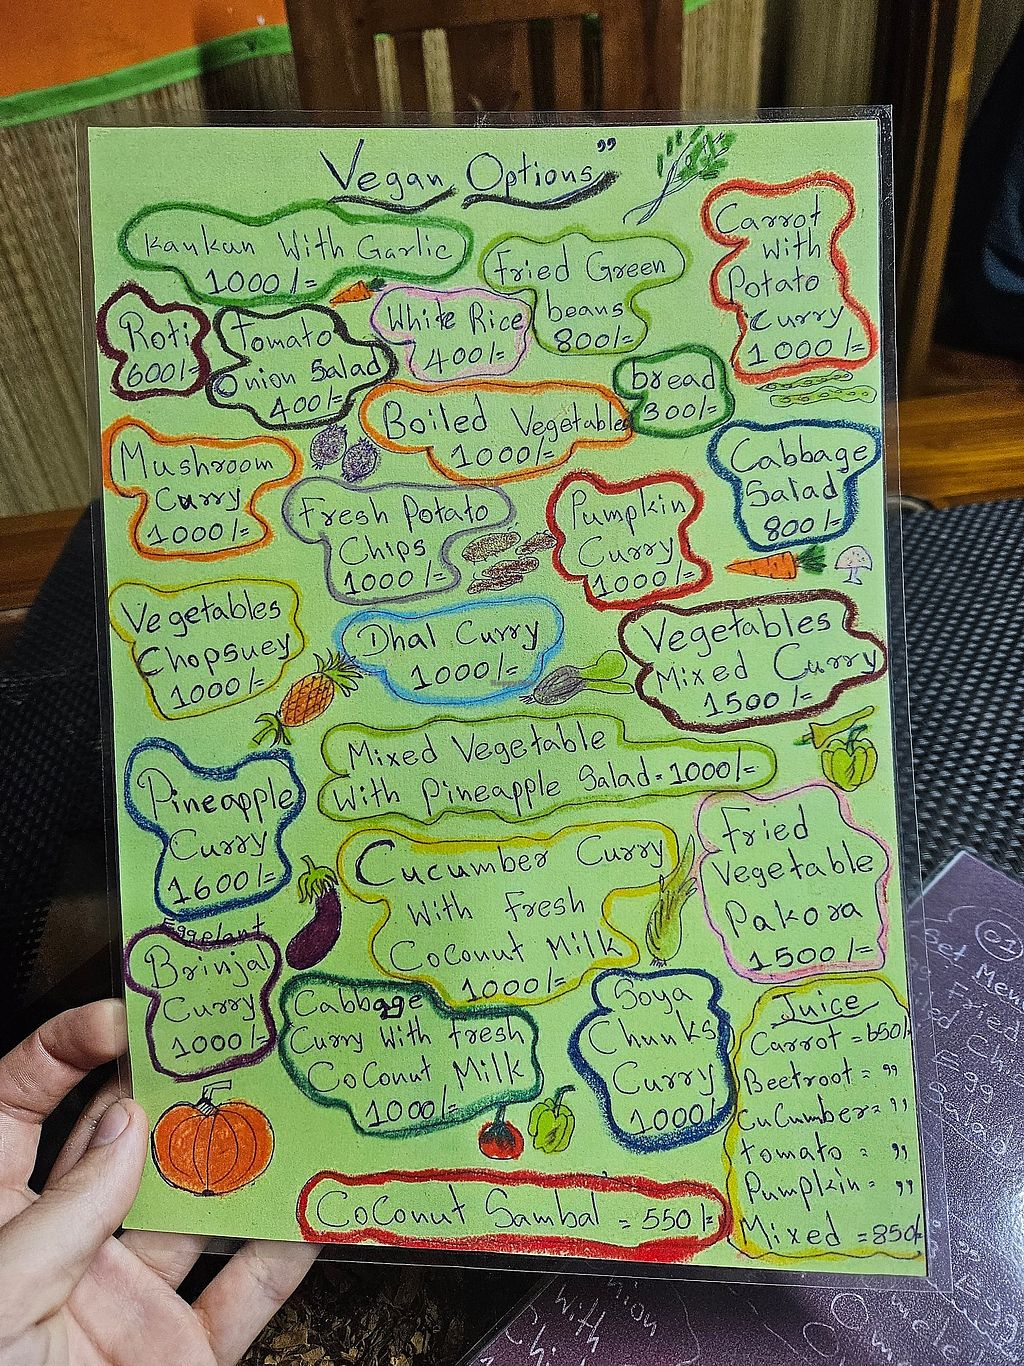 Vegan Options"
Kankun With Garlic
1000/=
Fried Green
beans
800/=
Carrot
With
Potato
Curry
1000/=
Roti
600/=
Tomato
Onion Salad
400/=
White Rice
400/=
bread
300/=
Boiled Vegetable
1000/=
Mushroom
Curry
1000/=
Fresh Potato
Chips
1000/=
Pumpkin
Curry
1000/=
Cabbage
Salad
800/=
Vegetables
Chopsuey
1000/=
Dhal Curry
1000/=
Vegetables
Mixed Curry
1500/=
Mixed Vegetable
With Pineapple Salad = 1000/=
Pineapple
Curry
1600/=
Cucumber Curry
With Fresh
Coconut Milk
1000/=
Fried
Vegetable
Pakora
1500/=
Eggplant
Brinjal
Curry
1000/=
Cabbage
Curry With fresh
Coconut Milk
1000/=
Soya
Chunks
Curry
1000/=
Juice
Carrot = 650/=
Beetroot = "
Cucumber = "
tomato = "
Pumpkin = "
Mixed = 850/=
Coconut Sambal = 550/=
01
Set Menu
Fried
Egg